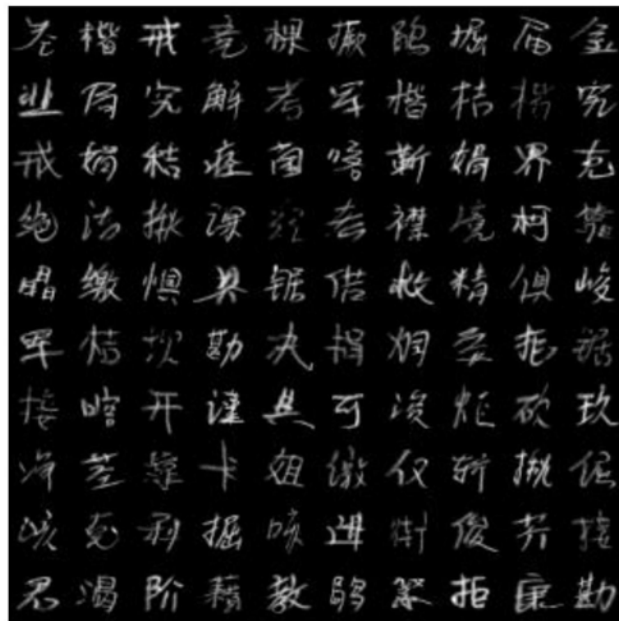 卷 楷 戒 竞 棵 撅 鹃 掘 届 金
韭 局 究 解 考 军 楷 桔 楷 究
戒 娟 秸 痊 菌 喀 靳 娟 界 克
绝 洁 揪 课 窟 去 襟 境 柯 靠
晴 缴 惧 具 锯 借 救 精 俱 峻
军 桔 坎 勘 决 捐 炯 柔 拒 锯
接 喀 开 谨 具 可 浚 炬 砍 玖
净 茎 靠 卡 姐 缴 仅 斩 揪 倨
咳 克 掘 咳 进 街 俊 芥 接
君 渴 阶 藉 教 鹃 聚 拒 康 勘